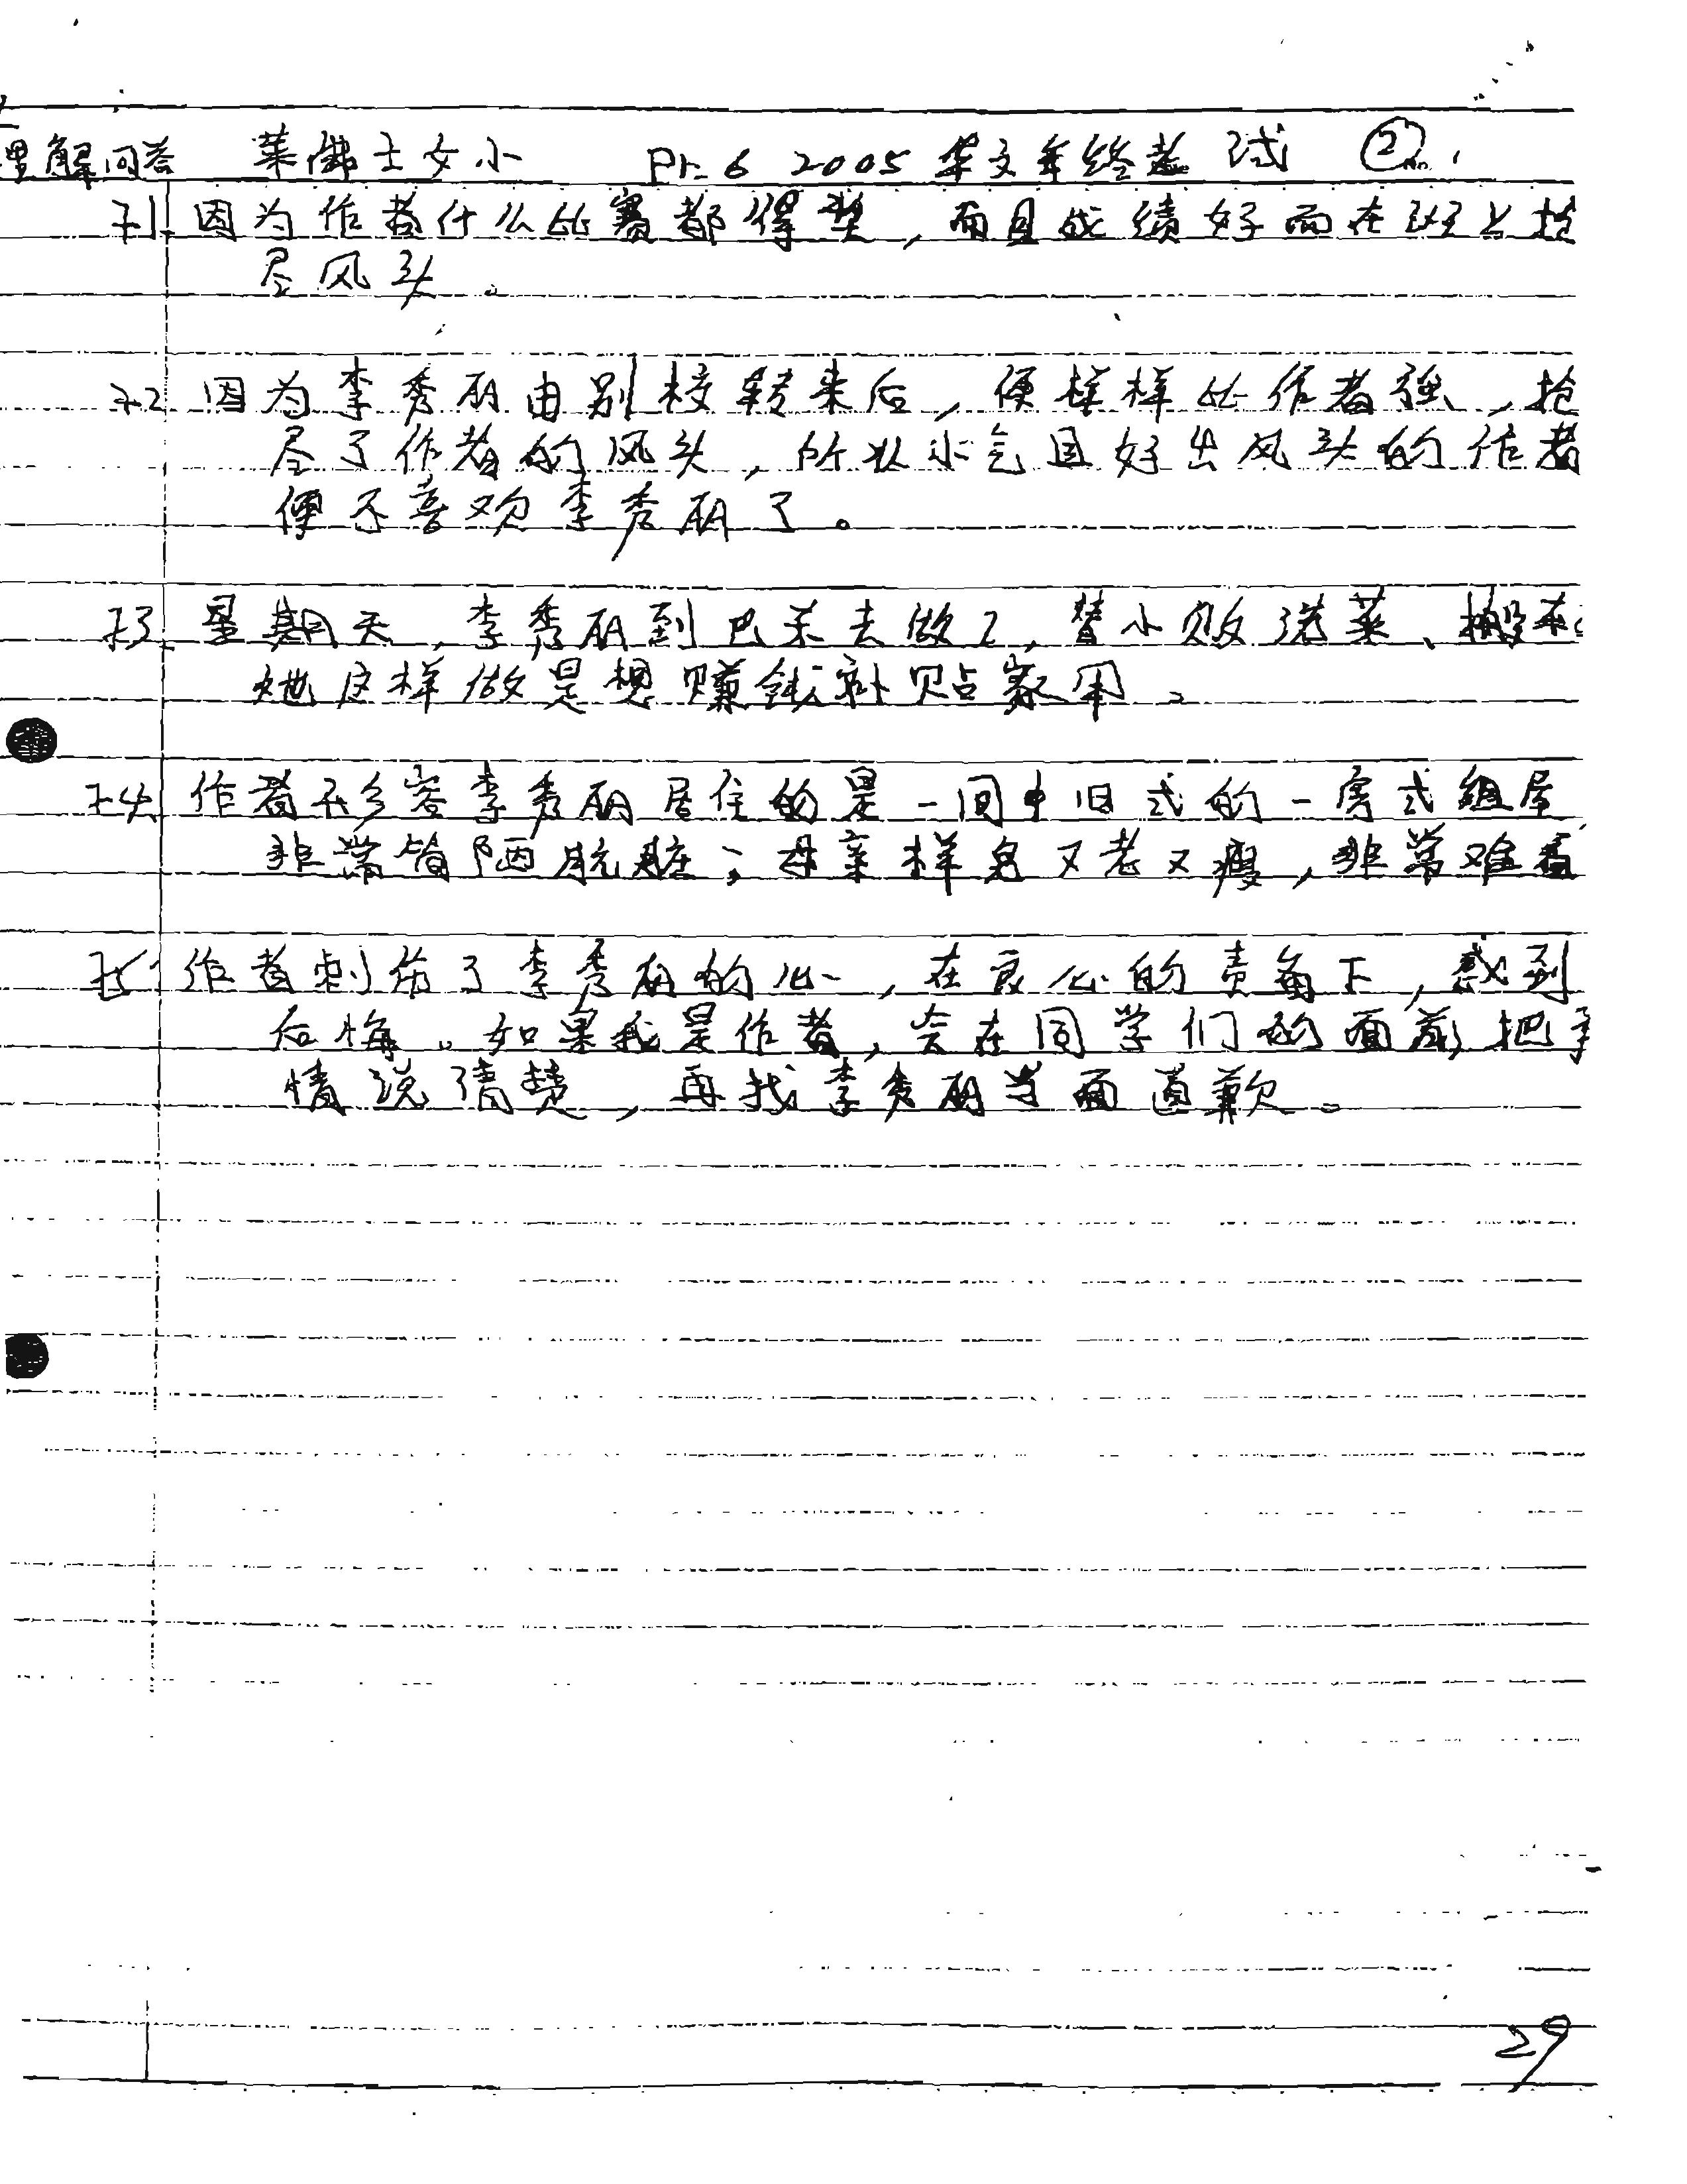 理解问答 莱佛士女小 Pr. 6 2005 华文年终考试 ②
No.
71. 因为作者什么比赛都得奖，而且成绩好而在班上抢
尽风头。
72. 因为李秀丽由别校转来后，便样样比作者强，抢
尽了作者的风头，所以小气且好出风头的作者
便不喜欢李秀丽了。
73. 星期天，李秀丽到巴杀去做工，替小贩洗菜、搬
她这样做是想赚钱补贴家用。
74. 作者形容李秀丽居住的是一间中旧式的一房式组屋
非常简陋肮脏；母亲样貌又老又瘦，非常难看
75. 作者刺伤了李秀丽的心，在良心的责备下，感到
后悔。如果我是作者，会在同学们的面前，把事
情说清楚，再找李秀丽当面道歉。
29